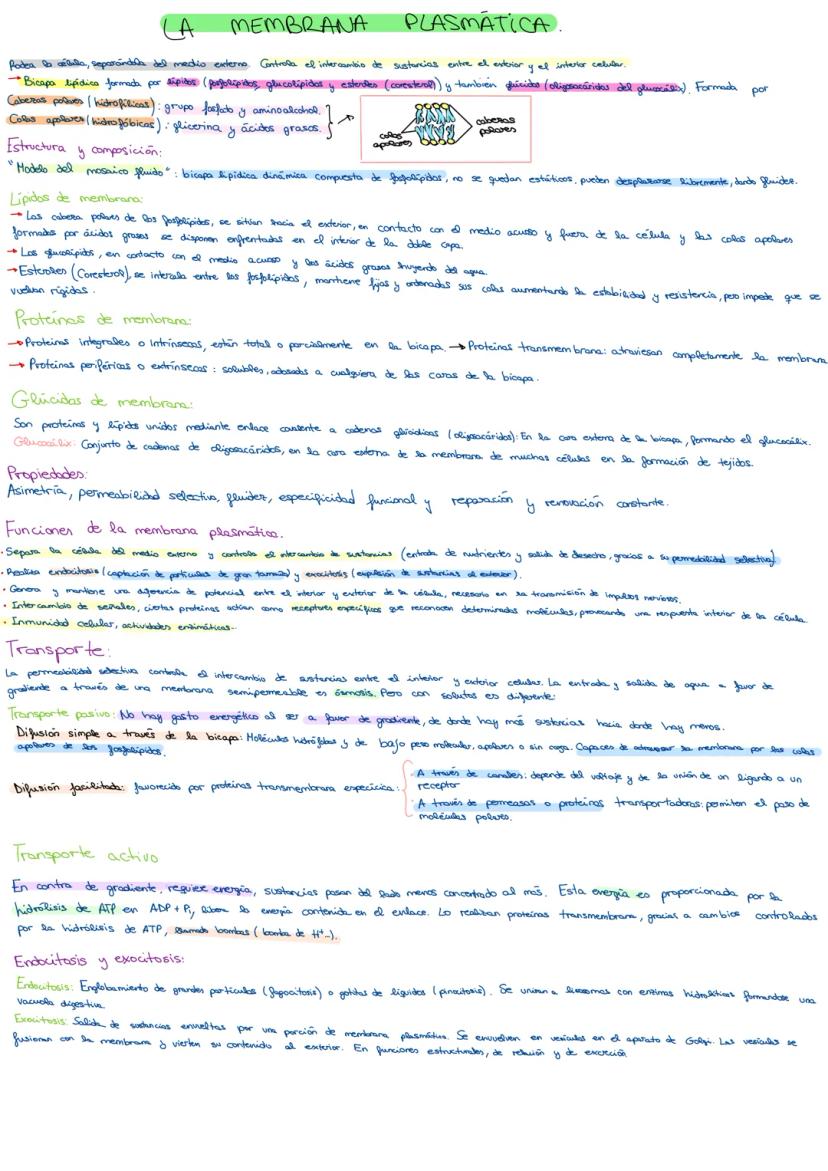 LA MEMBRANA PLASMÁTICA.
Rodea la célula, separándola del medio externo. Controla el intercambio de sustancias entre el exterior y el interior celular.
→ Bicapa lipídica formada por lípidos (fosfolípidos, glucolípidos y esteroles (coresterol)) y también glúcidos (oligosacáridos del glucocálix). Formada por
Cabezas polares (hidrofílicas): grupo fosfato y aminoalcohol.
Colas apolares (hidrofóbicas): glicerina y ácidos grasos.
colas apolares
cabezas polares
Estructura y composición:
"Modelo del mosaico fluido": bicapa lipídica dinámica compuesta de fosfolípidos, no se quedan estáticos, pueden desplazarse libremente, dando fluidez.
Lípidos de membrana:
→ Las cabeza polares de los fosfolípidos, se sitúan hacia el exterior, en contacto con el medio acuoso y fuera de la célula y las colas apolares
formadas por ácidos grasos se disponen enfrentadas en el interior de la doble capa.
→ Los glucolípidos, en contacto con el medio acuoso y los ácidos grasos huyendo del agua.
→ Esteroles (Coresterol), se intercala entre los fosfolípidos, mantiene fijas y ordenadas sus colas aumentando la estabilidad y resistencia, pero impede que se
vuelvan rígidas.
Proteínas de membrana:
→ Proteínas integrales o Intrínsecas, están total o parcialmente en la bicapa. → Proteínas transmembrana: atraviesan completamente la membrana
→ Proteínas periféricas o extrínsecas: solubles, adosadas a cualquiera de las caras de la bicapa.
Glúcidos de membrana:
Son proteínas y lípidos unidos mediante enlace covalente a cadenas glúcidicas (oligosacáridos): En la cara externa de la bicapa, formando el glucocálix.
Glucocálix: Conjunto de cadenas de oligosacáridos, en la cara externa de la membrana de muchas células en la formación de tejidos.
Propiedades:
Asimetría, permeabilidad selectiva, fluidez, especificidad funcional y reparación y renovación constante.
Funciones de la membrana plasmática.
· Separa la célula del medio externo y controla el intercambio de sustancias (entrada de nutrientes y salida de desecho, gracias a su permeabilidad selectiva)
· Realiza endocitosis (captación de partículas de gran tamaño) y exocitosis (expulsión de sustancias al exterior).
· Genera y mantiene una diferencia de potencial entre el interior y exterior de la célula, necesario en la transmisión de impulsos nerviosos.
· Intercambio de señales, ciertas proteínas actúan como receptores específicos que reconocen determinadas moléculas, provocando una respuesta interior de la célula.
· Inmunidad celular, actividades enzimáticas...
Transporte:
La permeabilidad selectiva controla el intercambio de sustancias entre el interior y exterior celular. La entrada y salida de agua a favor de
gradiente a través de una membrana semipermeable es ósmosis. Pero con solutos es diferente:
Transporte pasivo: No hay gasto energético al ser a favor de gradiente, de donde hay más sustancias hacia donde hay menos.
Difusión simple a través de la bicapa: Moléculas hidrófobas y de bajo peso molecular, apolares o sin carga. Capaces de atravesar la membrana por las colas
apolares de los fosfolípidos.
Difusión facilitada: favorecido por proteínas transmembrana específica:
· A través de canales: depende del voltaje y de la unión de un ligando a un
receptor
· A través de permeasas o proteínas transportadoras: permiten el paso de
moléculas polares.
Transporte activo
En contra de gradiente, requiere energía, sustancias pasan del lado menos concentrado al más. Esta energía es proporcionada por la
hidrólisis de ATP en ADP + Pi, libera la energía contenida en el enlace. Lo realizan proteínas transmembrana, gracias a cambios controlados
por la hidrólisis de ATP, llamado bombas (bomba de H+...).
Endocitosis y exocitosis:
Endocitosis: Englobamiento de grandes partículas (fagocitosis) o gotitas de líquidos (pinocitosis). Se uniran a lisosomas con enzimas hidrolíticas formandose una
vacuola digestiva.
Exocitosis: Salida de sustancias envueltas por una porción de membrana plasmática. Se envuelven en vesículas en el aparato de Golgi. Las vesículas se
fusionan con la membrana y vierten su contenido al exterior. En funciones estructurales, de relación y de excreción